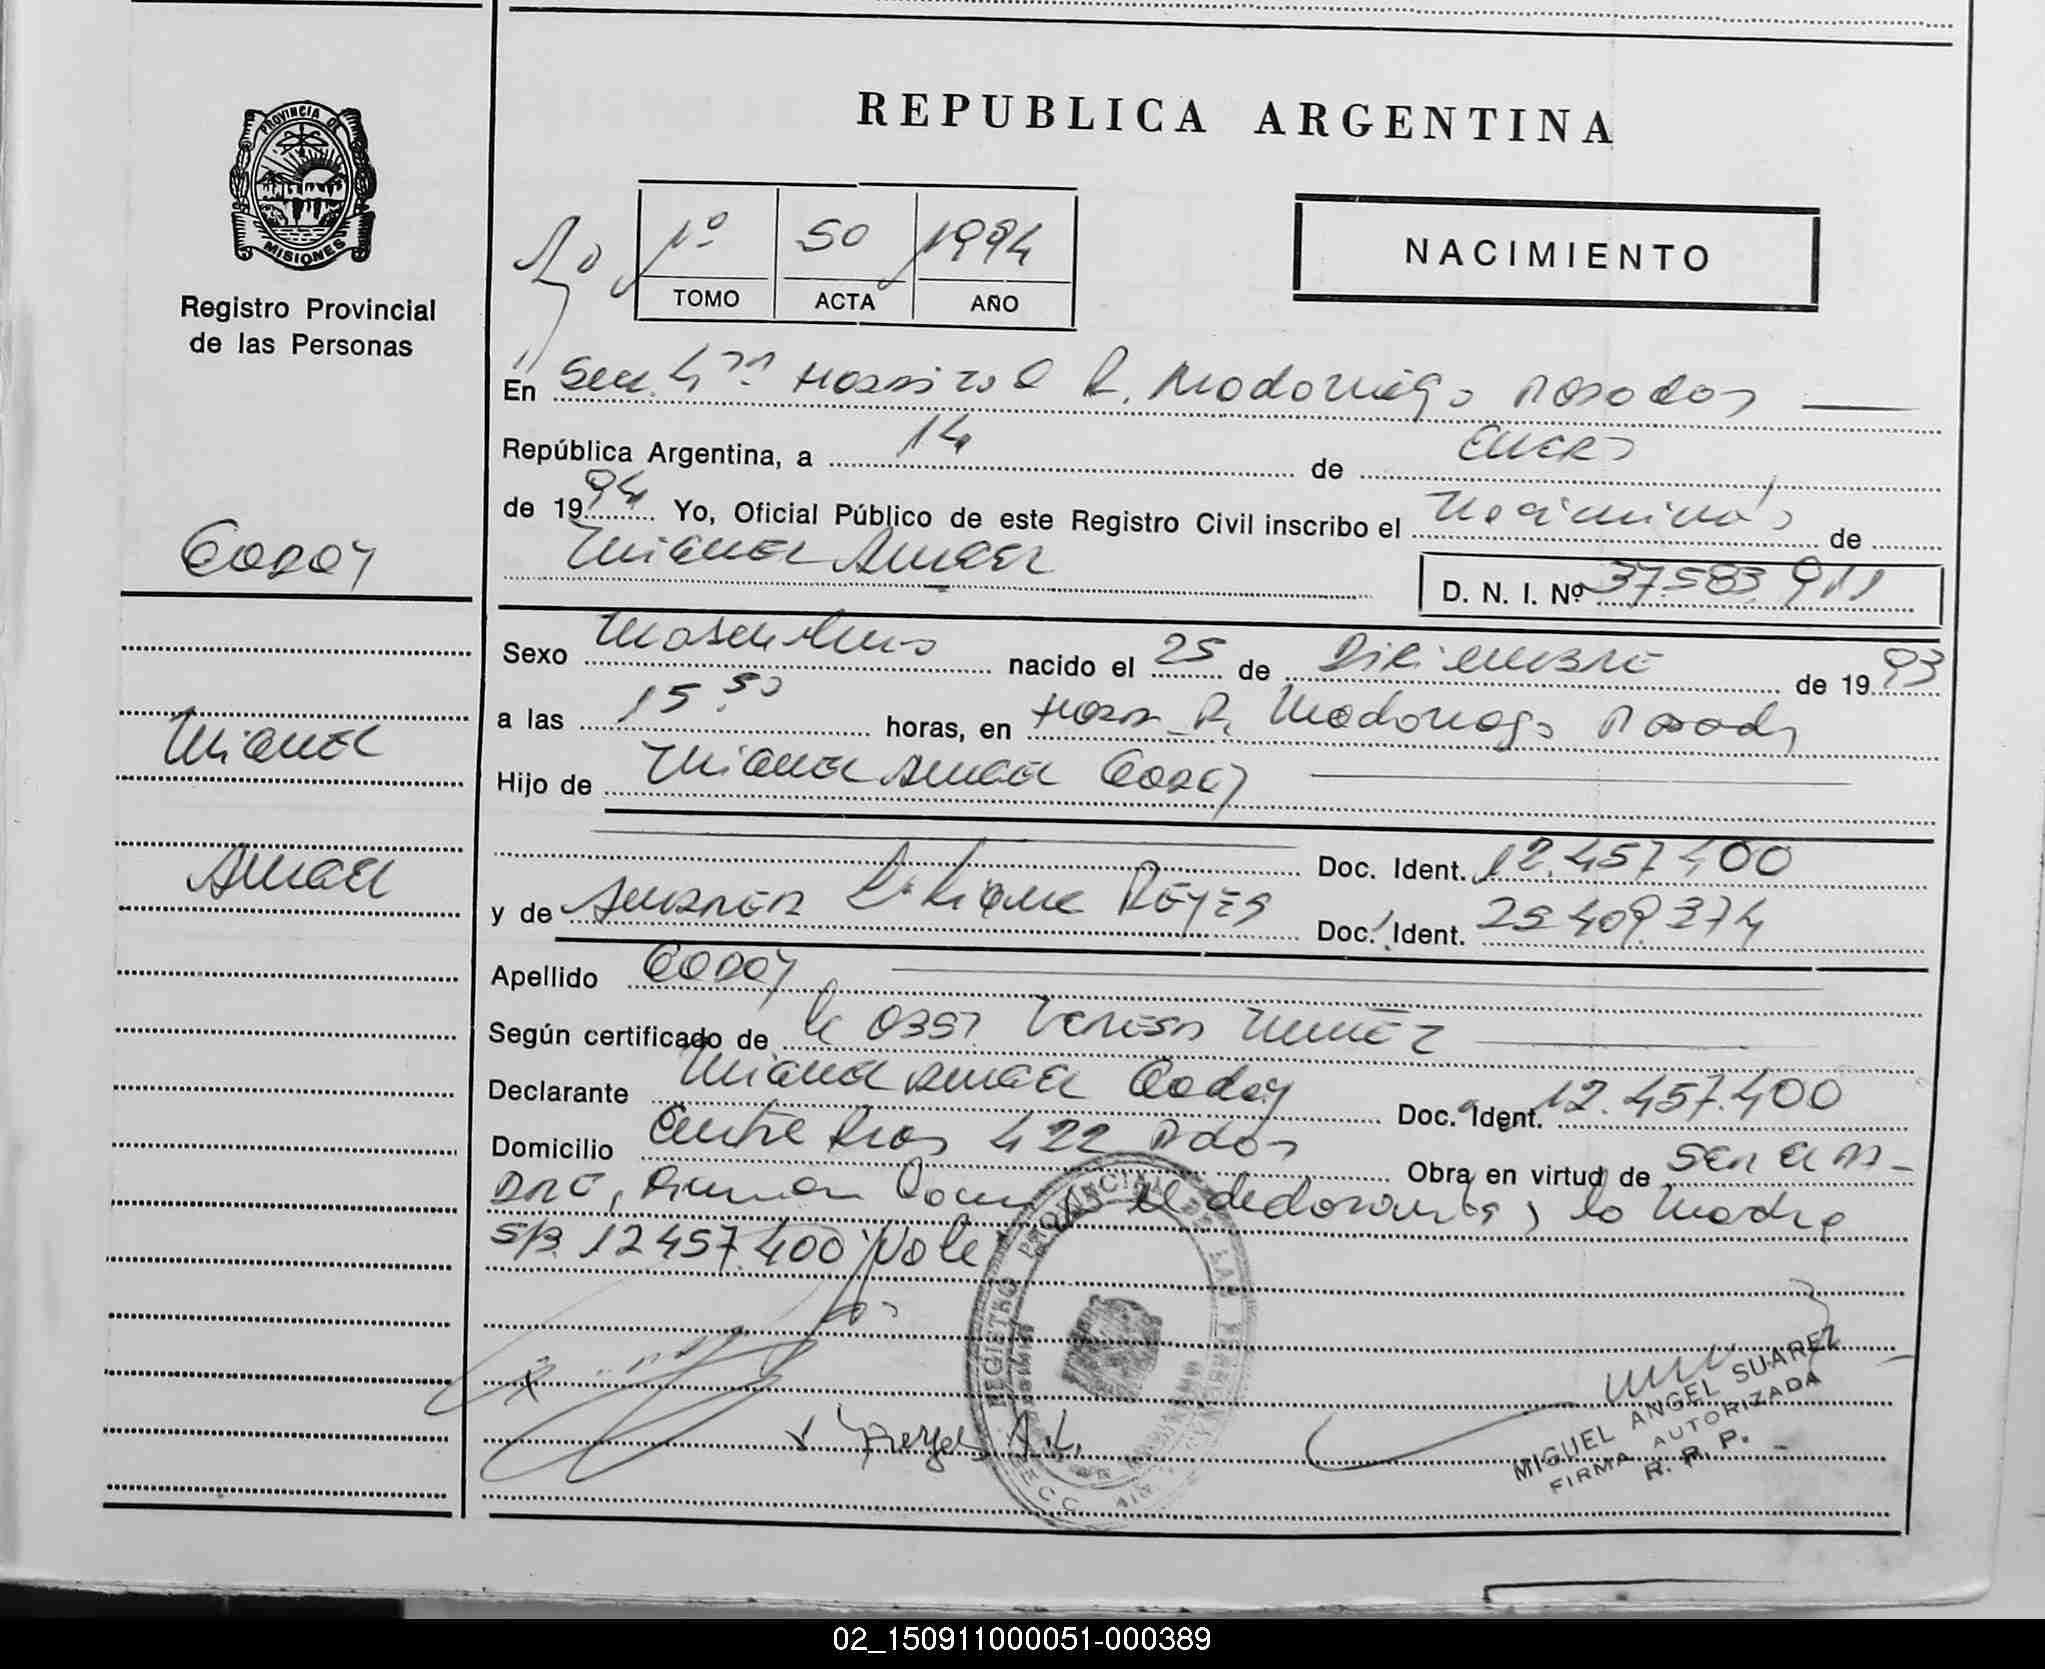 REPUBLICA ARGENTINA
PROVINCIA DE
MISIONES
Registro Provincial
de las Personas
1º 50 1994
TOMO ACTA AÑO
NACIMIENTO
En Secc. 4ta Hospital R. Madariaga Posadas
República Argentina, a 14 de Enero
de 1994 Yo, Oficial Público de este Registro Civil inscribo el Nacimiento de
Miguel Angel
D. N. I. Nº 37.583.911
Godoy
Miguel
Angel
Sexo Masculino nacido el 25 de Diciembre de 1993
a las 15.50 horas, en Hosp. R. Madariaga Posadas
Hijo de Miguel Angel Godoy
Doc. Ident. 12.457.400
y de Liliana REYES Doc. Ident. 25.409.374
Apellido Godoy
Según certificado de la Obst. Teresa Nuñez
Declarante Miguel Angel Godoy Doc. Ident. 12.457.400
Domicilio Entre Rios 422 Pdas Obra en virtud de Ser el Pa-
dre, Firman Como el declarante y la Madre
S/B. 12.457.400 Vale
Reyes A.L.
REGISTRO PROVINCIAL DE LAS PERSONAS
MIGUEL ANGEL SUAREZ
FIRMA AUTORIZADA
R. P. P.
02_150911000051-000389